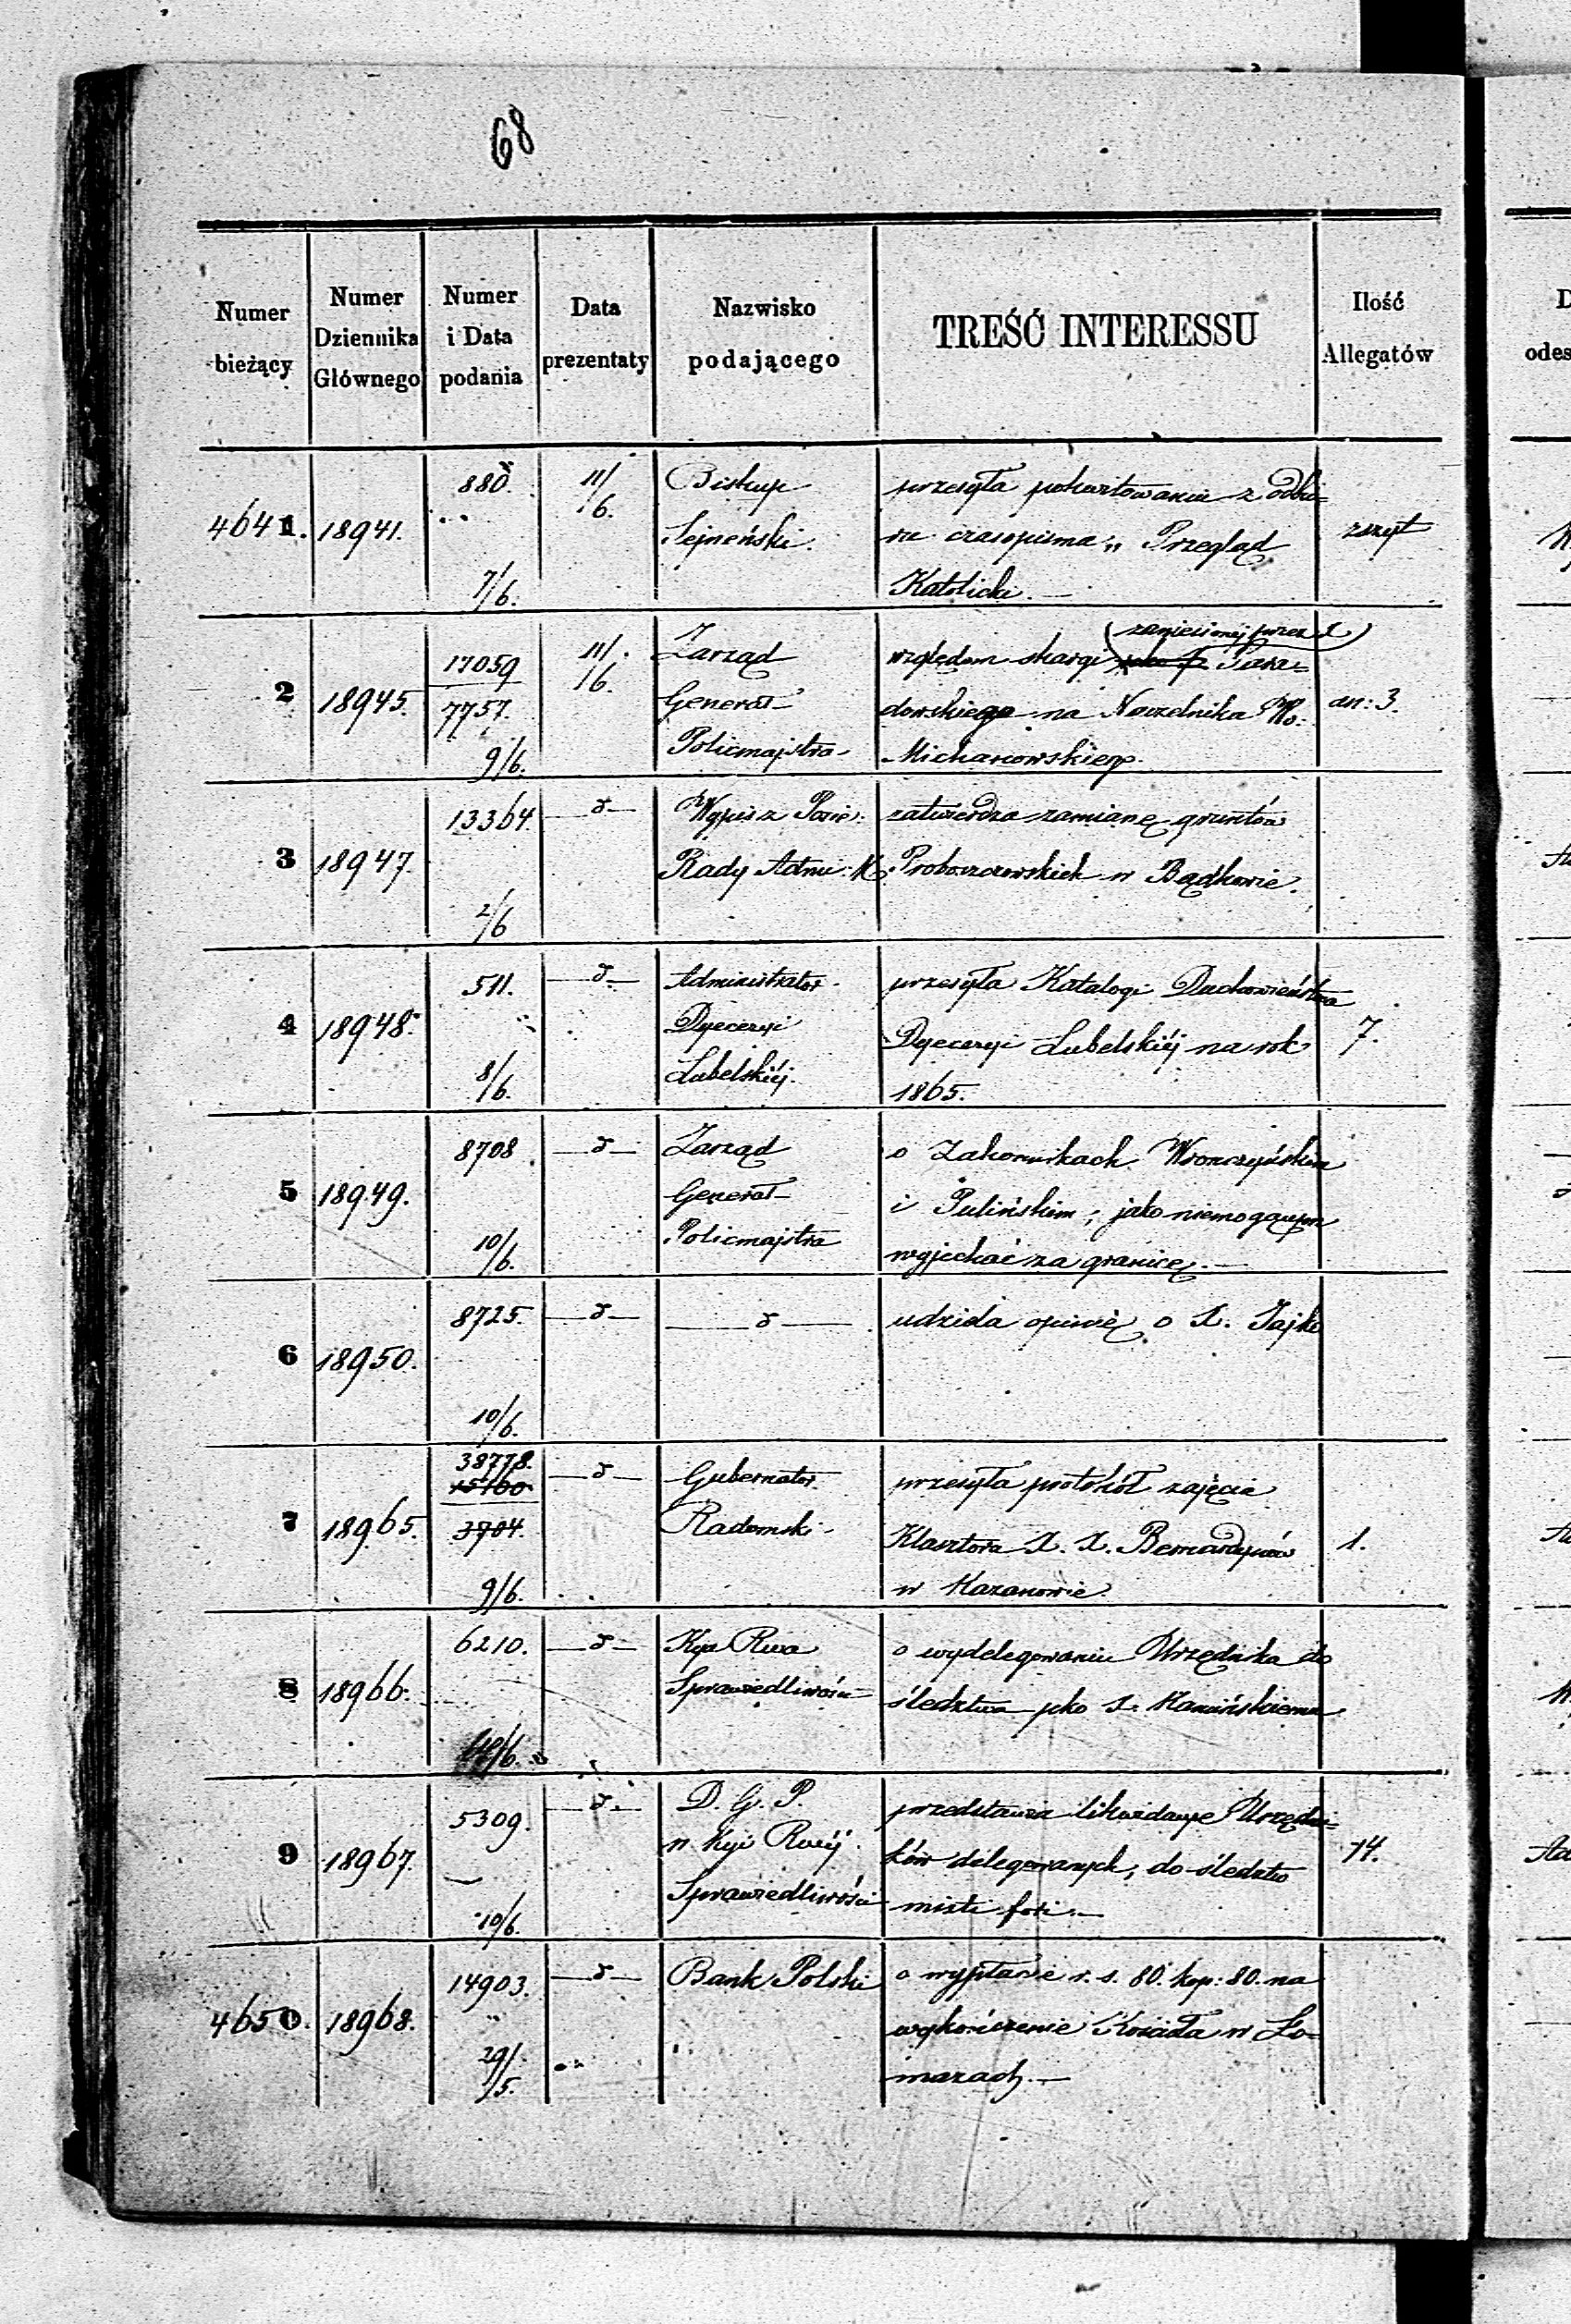 68
Numer bieżący | Numer Dziennika Głównego | Numer i Data podania | Data prezentaty | Nazwisko podającego | TREŚĆ INTERESSU | Ilość Allegatów
4641. | 18941. | 880. 7/6. | 11/6. | Biskup | przesyła pokwitowanie z odbio=
Sejneński. | ru czasopisma „Przegląd | zszyt
Katolicki.—
2 | 18945. | 17059 7757. 9/6. | 11/6. | Zarząd | względem skargi (zaniesionej przez X) Tara=
Generał- | dowskiego na Naczelnika Wo: | an: 3.
Policmajstra | Michanowskiego.
3 | 18947. | 13364. 2/6 | —d— | Wypis z Posie: | zatwierdza zamianę gruntów
Rady Admi: K. | Proboszczowskich w Bądkowie.
4 | 18948. | 511. 8/6. | —d— | Administrator | przesyła Katalogi Duchowieństwa
Dyecezyi | Dyecezyi Lubelskiéj na rok | 7.
Lubelskiéj. | 1865.
5 | 18949. | 8708. 10/6. | —d— | Zarząd | o Zakonnikach Wronczyńskim
Generał- | i Pulińskim, jako niemogącym
Policmajstra | wyjechać za granicę.—
6 | 18950. | 8725. 10/6. | —d— | —d— | udziela opinię o X. Jajko
7 | 18965. | 38778. 15160 3704. 9/6. | —d— | Gubernator | przesyła protokół zajęcia
Radomski | Klasztora X. X. Bernardynów | 1.
w Kazanowie.
8 | 18966. | 6210. 10/6. | —d— | Kya Rwa | o wydelegowaniu Urzędnika do
Sprawiedliwości | śledztwa pko X. Kamińskiemu
9 | 18967. | 5309. 10/6. | —d— | D. G. P. | przedstawia likwidacye Urzędni=
w Kyi Rwéj | ków delegowanych, do śledztw | 14.
Sprawiedliwości | mixti fori.—
4650. | 18968. | 14903. 29/5. | —d— | Bank Polski | o wypłacie r. s. 80. kop: 80. na
wykończenie Kościoła w Ło=
mazach.—